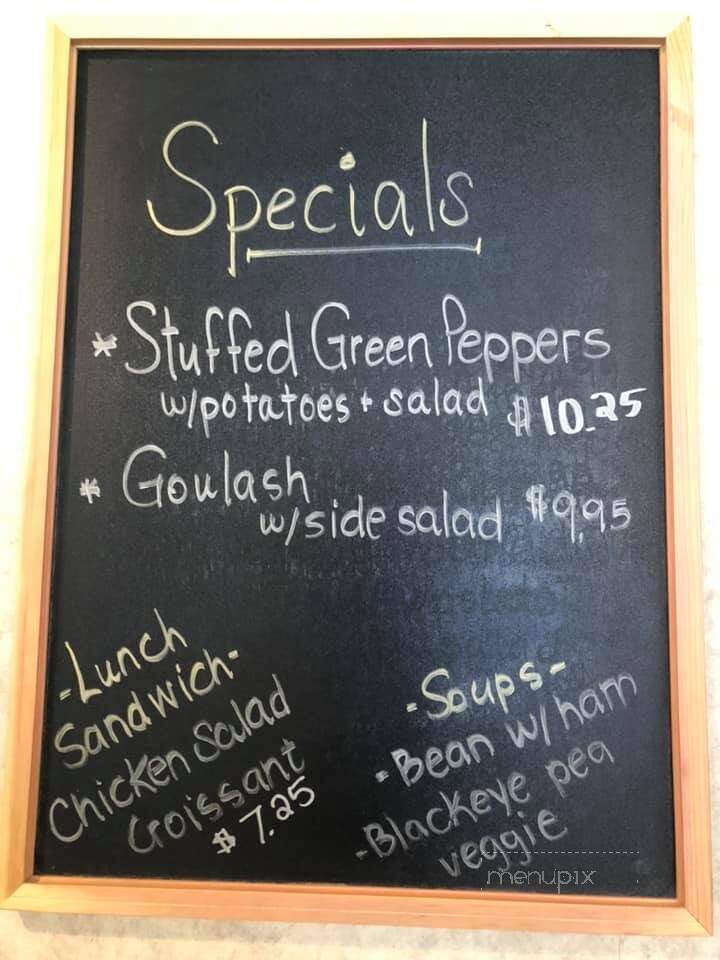 Specials
* Stuffed Green Peppers
w/potatoes + salad $10.25
* Goulash
w/side salad $9.95
-Lunch
Sandwich-
Chicken Salad
Croissant
$7.25
-Soups-
- Bean w/ ham
- Blackeye pea
veggie
menupix